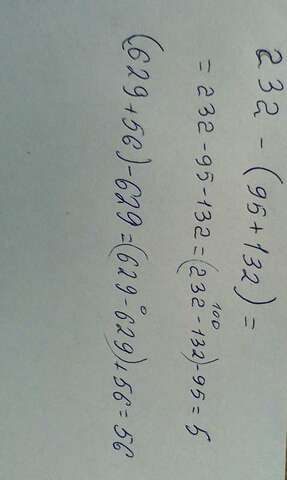 232 - (95 + 132) =
= 232 - 95 - 132 = (232 - 132) - 95 = 5
100
(629 + 56) - 629 = (629 - 629) + 56 = 56
0